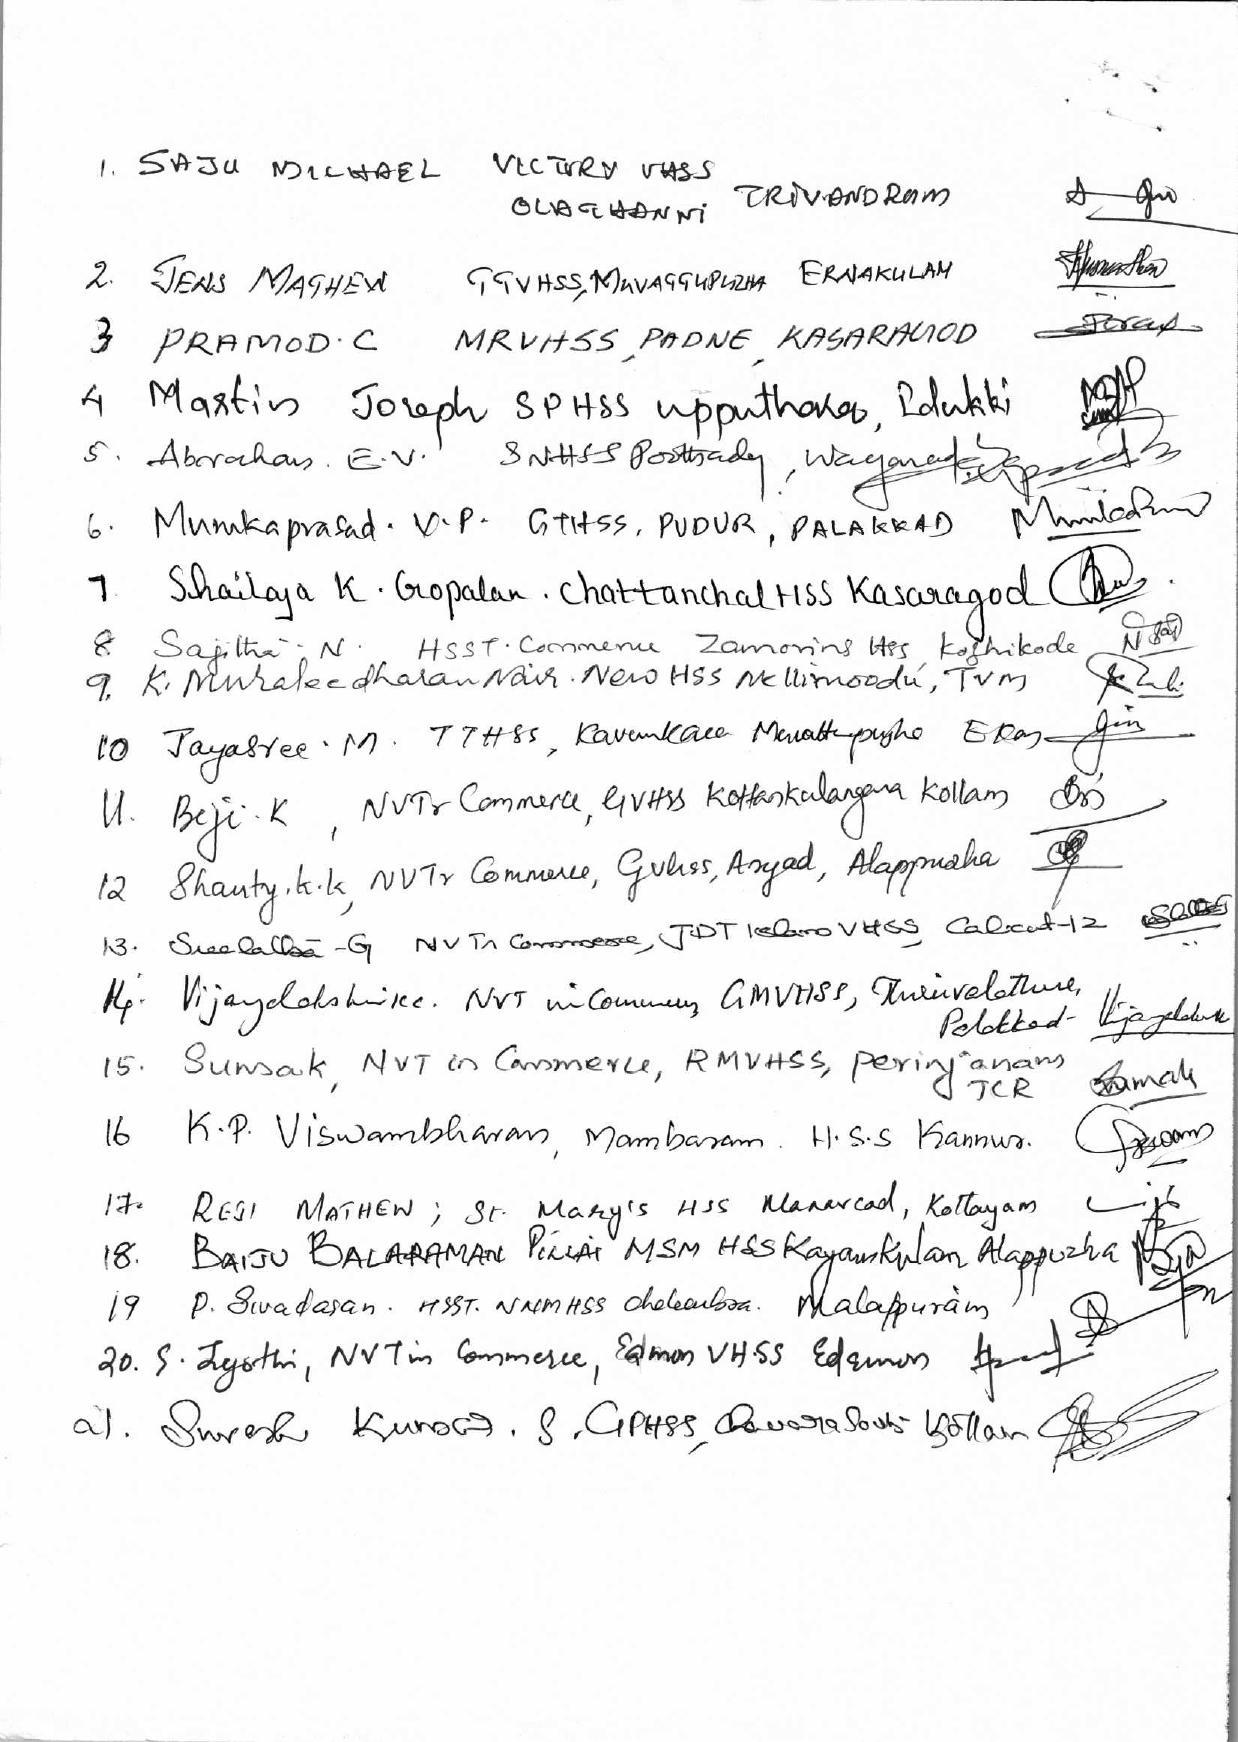 1. SAJU MICHAEL VICTORY VHSS
OLATHANNI TRIVANDRAM
2. JENS MATHEW GTVHSS, ERNAKULAM
3 PRAMOD. C MRVHSS, PADNE, KASARAGOD
4 Martin Joseph SPHSS upputhara, Idukki
5. Abraham. E.V. SNHSS Wayanad
6. Munikaprasad. V.P. GTHSS, PUDUR, PALAKKAD
7 Shailaja K. Gopalan. Chattanchal HSS Kasaragod
8. Sajitha. N. HSST. Commerce Zamorins Hss Kozhikode
9. K. Muraleedharan Nair. New HSS Nellimoodu, TVM
10 Jayasree. M. TTHSS, Kavumkara
11. Beji. K, NVTr Commerce, GVHSS Kottankulangara Kollam
12 Shanty. k. k, NVTr Commerce, Gvhss, Aryad, Alappuzha
13. Sreelatha -G NVTr Commerce, JDT Islam VHSS, Calicut-12
14. NVT in Commerce, GMVHSS,
Palakkad
15. NVT in Commerce, RMVHSS, Perinjanam
TCR
16 K.P. Viswambharan, Mambaram. H.S.S Kannur.
17. REJI MATHEW; St. Mary's HSS Manarcad, Kottayam
18. BAIJU BALARAMAN PILLAI MSM HSS Kayamkulam Alappuzha
19 P. Sivadasan. HSST. NNMHSS Chelembra. Malappuram
20. S. Jyothi, NVT in Commerce, Edmon VHSS Edamon
21. Suresh Kumar. S, GPHSS, Kollam